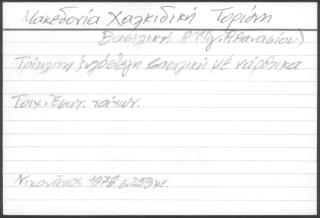 Μακεδονία Χαλκιδική Τορώνη
Βασιλική Β' (Αγ. Αθανασίου)
Τρίκλιτη ξυλόστεγη βασιλική μέ νάρθηκα
Τοιχ: Εσωτ. τοίχων.
Νικονάνος 1979 σ.253 κ.